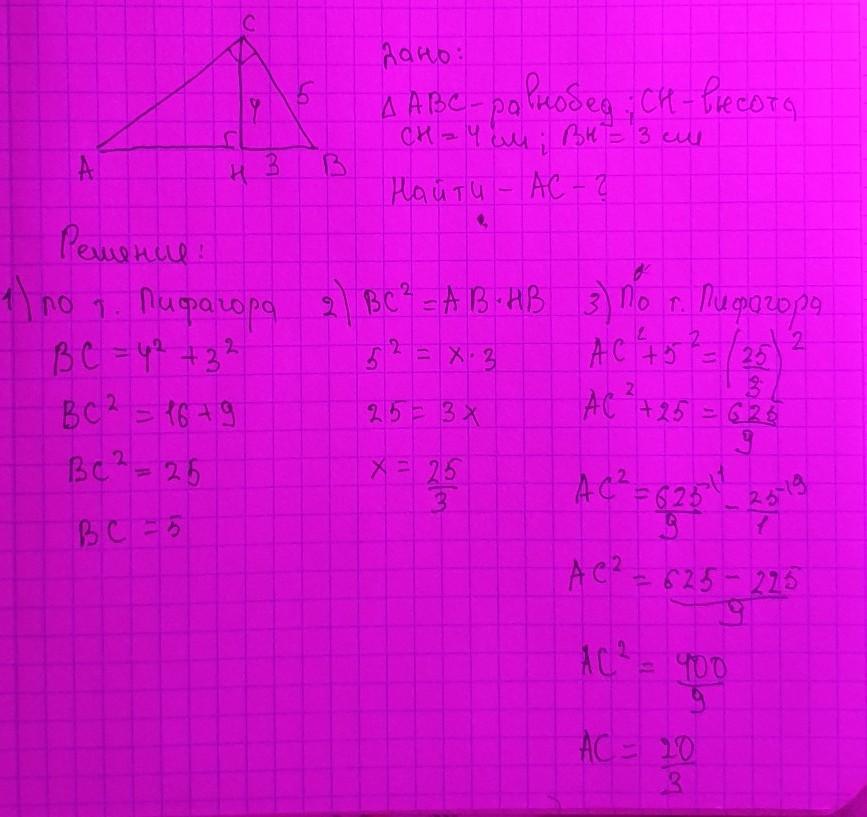 C
5
4
A
H
3
B
Дано:
Δ ABC - равнобед; CH - высота
CH = 4 см; BH = 3 см
Найти - AC - ?
Решение:
1) по т. Пифагора
BC = 4² + 3²
BC² = 16 + 9
BC² = 25
BC = 5
2) BC² = AB · HB
5² = x · 3
25 = 3x
x = 25/3
3) По т. Пифагора
AC² + 5² = (25/3)²
AC² + 25 = 625/9
AC² = 625\1/9 - 25\9/1
AC² = 625 - 225/9
AC² = 400/9
AC = 20/3